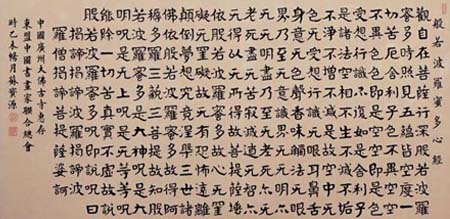 般若波羅蜜多心經
觀自在菩薩行深般若波羅蜜
多時照見五蘊皆空度一
切苦厄舍利子色不異空空
不異色色即是空空即是
色受想行識亦復如是舍利子
是諸法空相不生不滅不垢
不淨不增不減是故空中无
色无受想行識无眼耳鼻舌
身意无色聲香味觸法无眼
界乃至无意識界无无明亦
无无明盡乃至无老死亦无
老死盡无苦集滅道无智亦
无得以无所得故菩提薩埵
依般若波羅蜜多故心无罣
礙无罣礙故无有恐怖遠離
顛倒夢想究竟涅槃三世諸
佛依般若波羅蜜多故得阿
耨多羅三藐三菩提故知般
若波羅蜜多是大神呪是大
明呪是无上呪是无等等呪
能除一切苦真實不虛故說
般若波羅蜜多呪即說呪曰
揭諦揭諦波羅揭諦波
羅僧揭諦菩提薩婆訶
中國廣州大佛古寺惠存
東盟中國書畫家聯合總會
時乙未暢月寶源